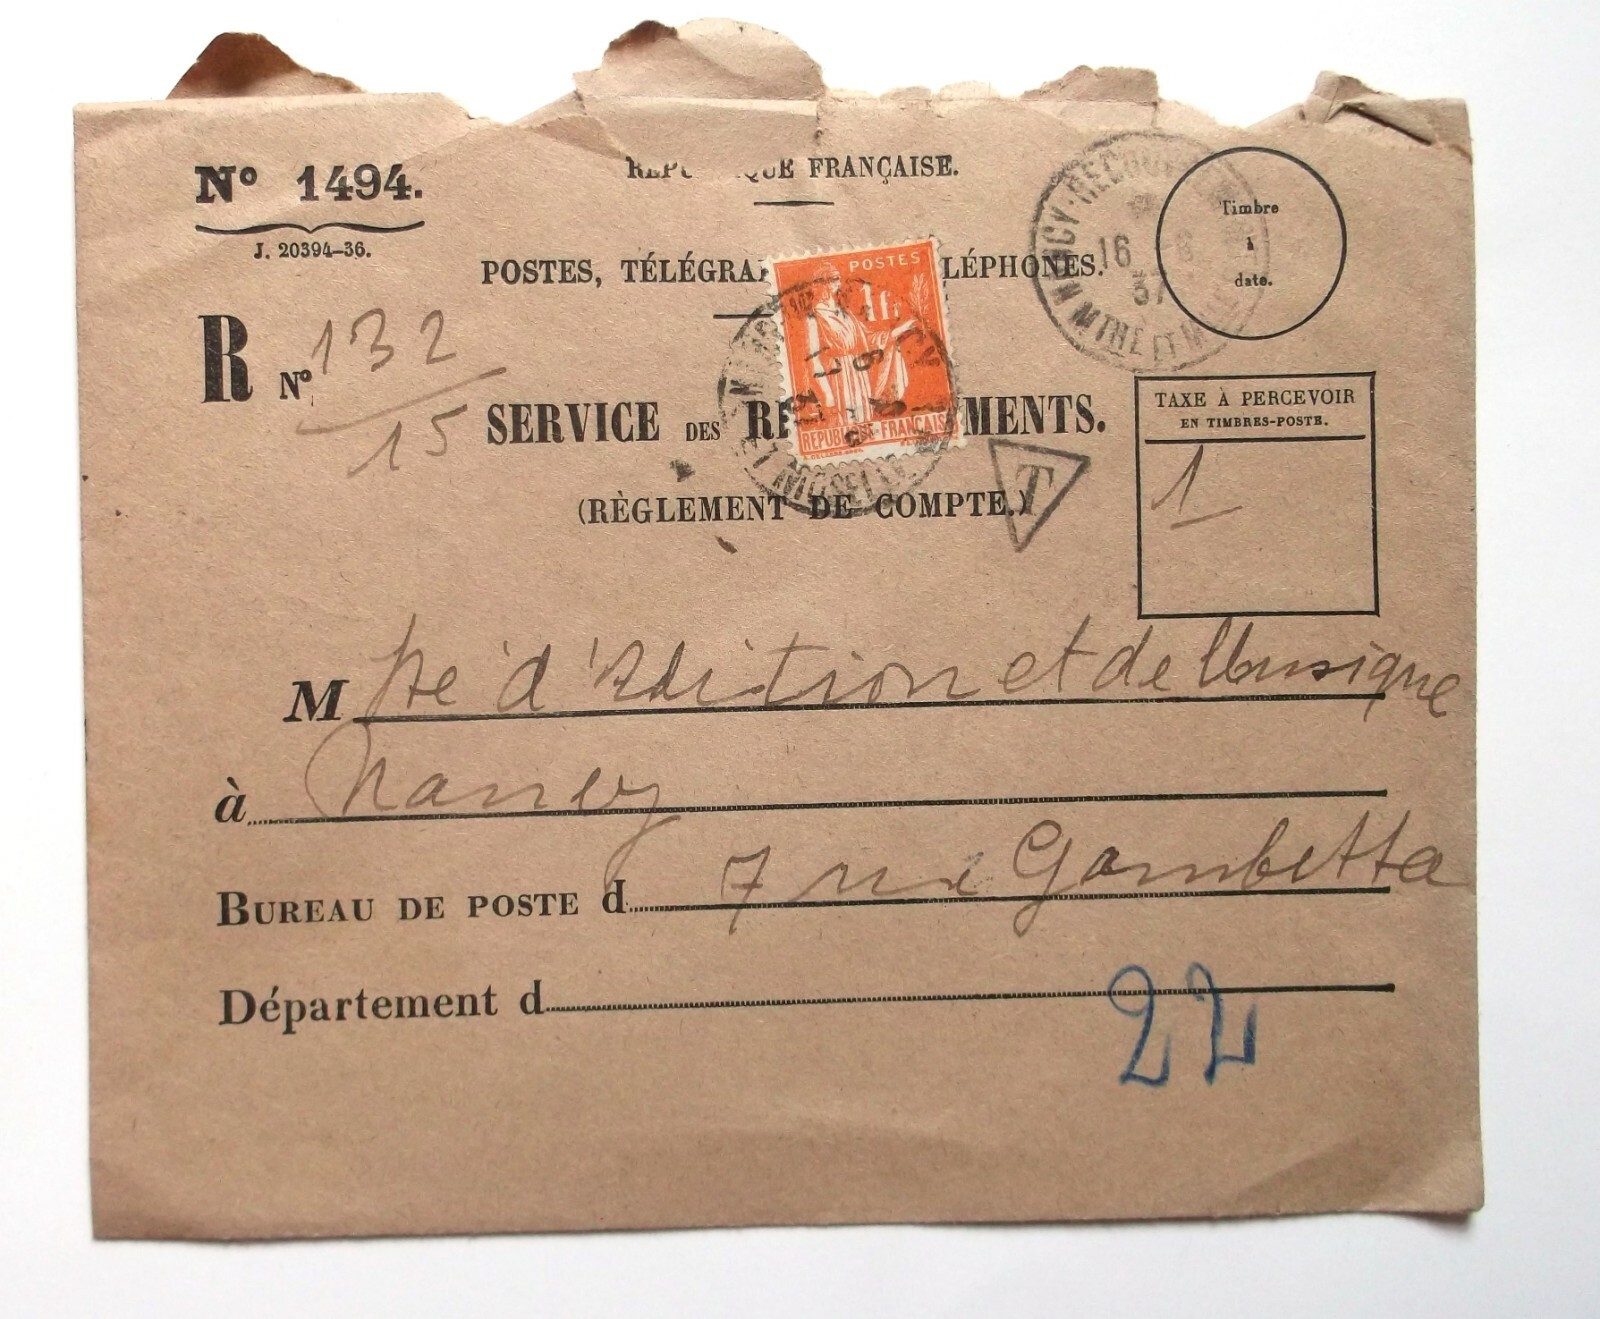 Nº 1494.
J. 20394-36.
RÉPU QUE FRANÇAISE.
POSTES, TÉLÉGRA LÉPHONES.
R Nº 132
15
SERVICE DES RE MENTS.
(RÈGLEMENT DE COMPTE.)
POSTES
1fr
REPUBLIQUE-FRANÇAISE
NANCY-RECOUV
16 6
37
MTHE ET M
Timbre
à
date.
T
TAXE À PERCEVOIR
EN TIMBRES-POSTE.
1
M Sté d'Edition et de Musique
à Nancy
BUREAU DE POSTE d 7 rue Gambetta
Département d
22